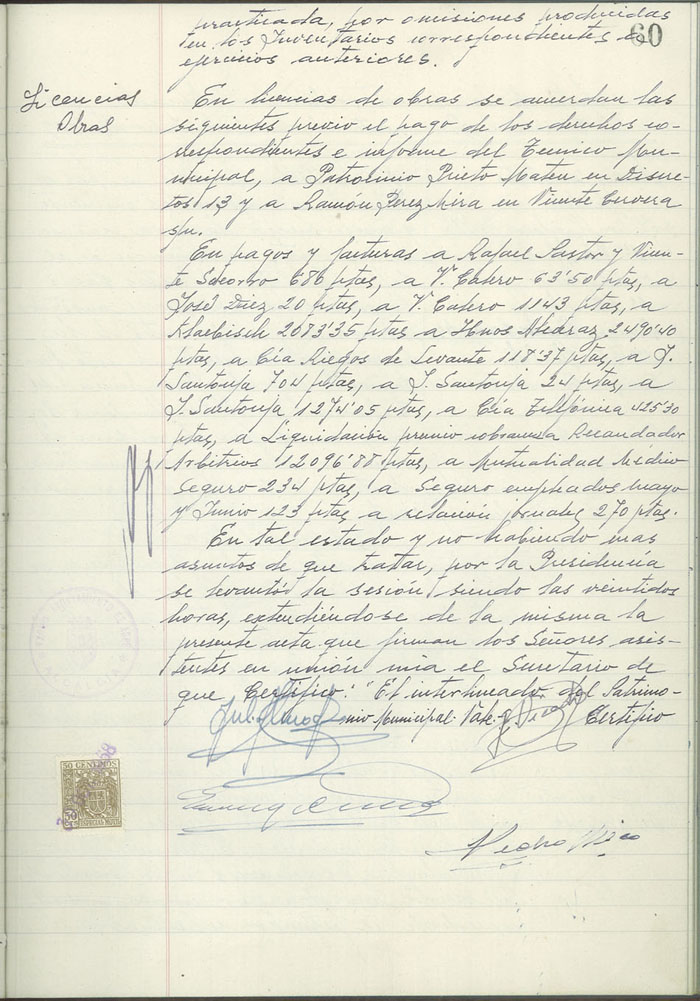 practicada, por omisiones producidas
en los Inventarios correspondientes a
ejercicios anteriores.
60
Licencias
Obras
En licencias de obras se acuerdan las
siguientes previo el pago de los derechos co-
rrespondientes e informe del Tecnico Mu-
nicipal, a Patrocinio Prieto Mateu en Disere-
tos 13 y a Ramón Perez Mira en Vicente Cervera
s/n.
En pagos y facturas a Rafael Pastor y Vicen-
te Socorro 686 ptas, a V. Calero 63'50 ptas, a
José Diez 20 ptas, a V. Calero 1143 ptas, a
Klaebisch 2073'35 ptas a Hnos 2490'40
ptas, a Cía Riegos de Levante 117'37 ptas, a J.
Santonja 704 ptas, a J. Santonja 24 ptas, a
J. Santonja 1274'05 ptas, a Cía Telefónica 425'30
ptas, a Liquidación premio cobranza Recaudador
Arbitrios 12096'88 ptas, a Mutualidad Médico
Seguro 234 ptas, a Seguro empleados mayo
y Junio 123 ptas a relación jornales 270 ptas.
En tal estado y no habiendo mas
asuntos de que tratar, por la Presidencia
se levantó la sesión siendo las veintidos
horas, extendiéndose de la misma la
presente acta que firman los Señores asis-
tentes en unión mia el Secretario de
que Certifico. "El interlineado del Patrimo-
nio Municipal. Vale. Certifico
50 CENTIMOS
Pedro Mico